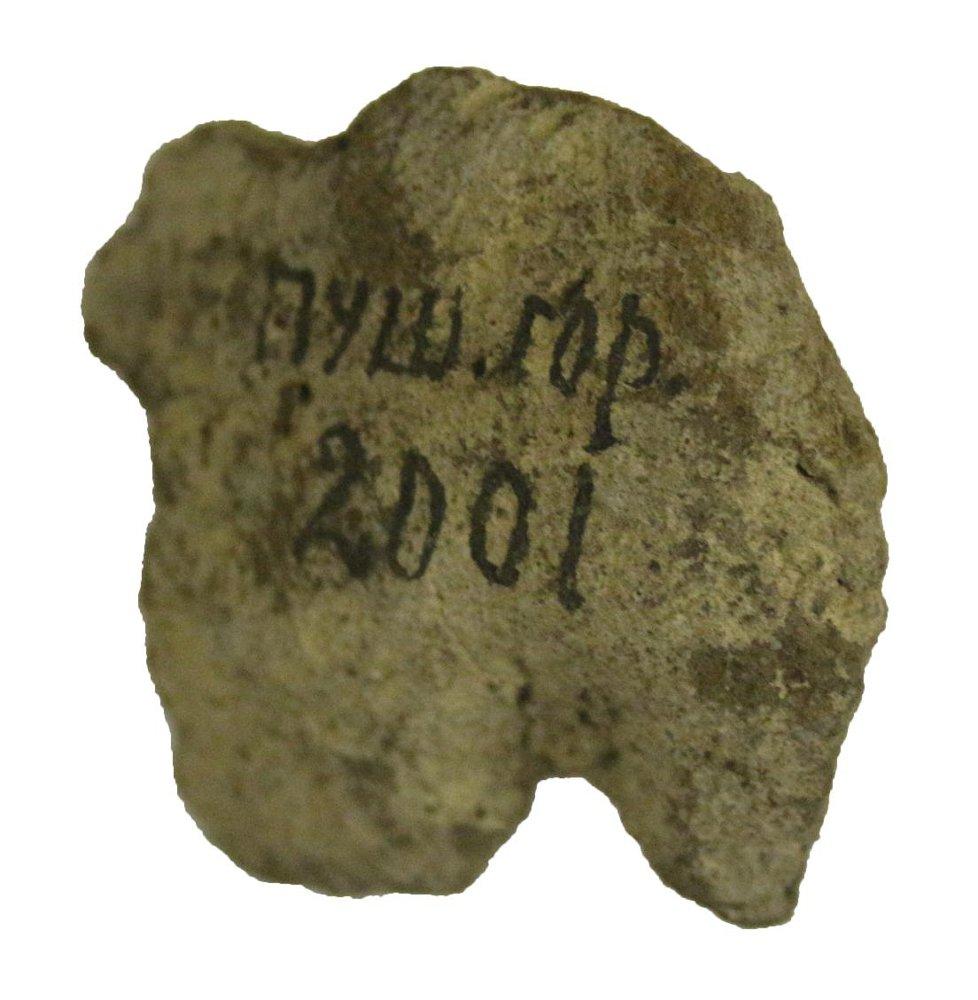 Пуш. гор.
2001